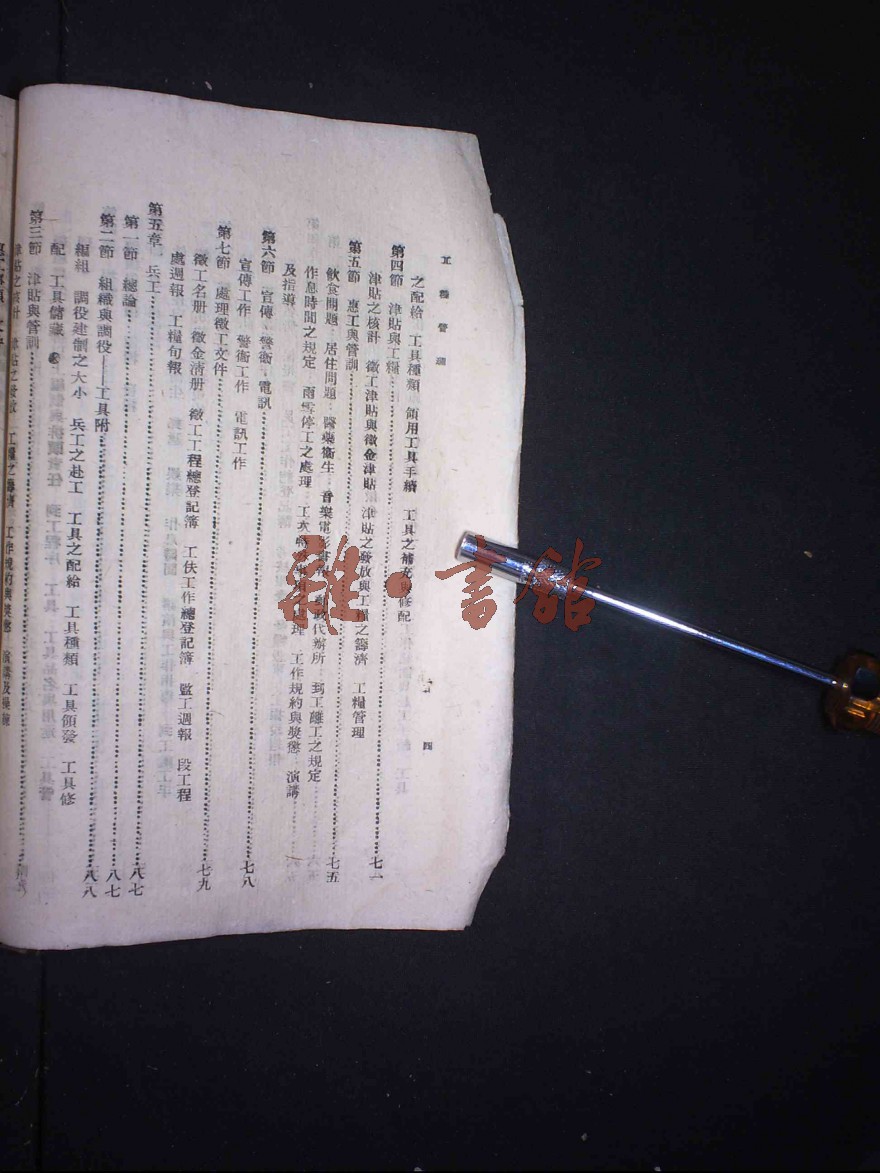 工程管理
四
之配給　工具種類　領用工具手續　工具之補充與修配
第四節　津貼與工糧……七一
津貼之核計　徵工津貼與徵金津貼　津貼之發放與工糧之籌濟　工糧管理
第五節　惠工與管訓……七五
飲食問題　居住問題　醫藥衛生　音樂電影書報　郵政代辦所　到工離工之規定
作息時間之規定　雨雪停工之處理　工作規約與獎懲　演講
及指導
第六節　宣傳、警衛、電訊……七八
宣傳工作　警衛工作　電訊工作
第七節　處理徵工文件……七九
徵工名册　徵金清册　徵工工程總登記簿　工伕工作總登記簿　監工週報　段工程
處週報　工糧旬報
第五章　兵工……八七
第一節　總論……八七
第二節　組織與調役——工具附……八八
編組　調役建制之大小　兵工之赴工　工具之配給　工具種類　工具領發　工具修
配　工具儲藏
第三節　津貼與管訓……
津貼之核計　津貼之發放　工糧之籌濟　工作規約與獎懲　演講及操練
雜·書舘